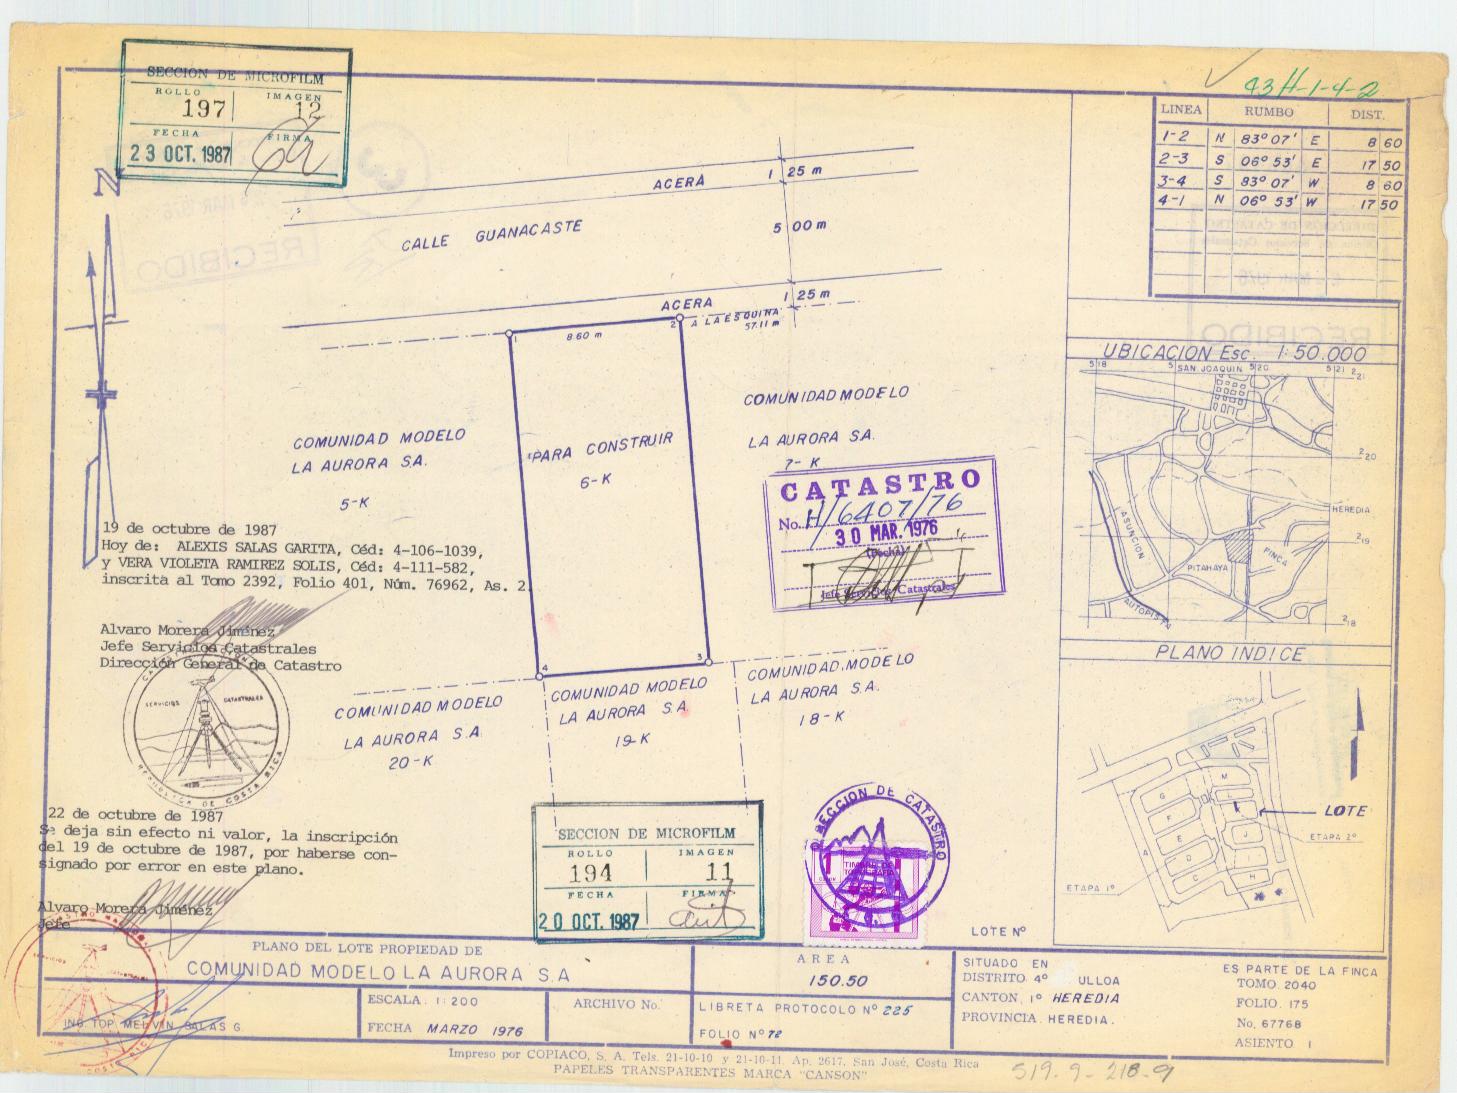 SECCION DE MICROFILM
ROLLO IMAGEN
197 12
FECHA FIRMA
23 OCT. 1987
N
43H-1-4-2
LINEA RUMBO DIST.
1-2 N 83° 07' E 8 60
2-3 S 06° 53' E 17 50
3-4 S 83° 07' W 8 60
4-1 N 06° 53' W 17 50
ACERA 1 25 m
CALLE GUANACASTE 5 00 m
ACERA 1 25 m
A LA ESQUINA
57.11 m
1 2
8.60 m
COMUNIDAD MODELO
LA AURORA S.A.
5-K
PARA CONSTRUIR
6-K
COMUNIDAD MODELO
LA AURORA S.A.
7-K
CATASTRO
No. H/6407/76
30 MAR. 1976
(Fecha)
Jefe Servicios Catastrales
4 3
COMUNIDAD MODELO
LA AURORA S.A.
20-K
COMUNIDAD MODELO
LA AURORA S.A.
19-K
COMUNIDAD MODELO
LA AURORA S.A.
18-K
19 de octubre de 1987
Hoy de: ALEXIS SALAS GARITA, Céd: 4-106-1039,
y VERA VIOLETA RAMIREZ SOLIS, Céd: 4-111-582,
inscrita al Tomo 2392, Folio 401, Núm. 76962, As. 2.
Alvaro Morera Jiménez
Jefe Servicios Catastrales
Dirección General de Catastro
SERVICIOS CATASTRALES
REPUBLICA DE COSTA RICA
22 de octubre de 1987
Se deja sin efecto ni valor, la inscripción
del 19 de octubre de 1987, por haberse con-
signado por error en este plano.
Alvaro Morera Jiménez
Jefe
SECCION DE MICROFILM
ROLLO IMAGEN
194 11
FECHA FIRMA
20 OCT. 1987
DIRECCION DE CATASTRO
UBICACION Esc. 1:50.000
518 5 SAN JOAQUIN 520 521 221
220
HEREDIA
219
ASUNCION
PITAHAYA
FINCA
AUTOPISTA
218
PLANO INDICE
G M
F L
E J
D
C H
A
LOTE
ETAPA 2°
ETAPA 1°
LOTE N°
PLANO DEL LOTE PROPIEDAD DE
COMUNIDAD MODELO LA AURORA S.A
ING. TOP. MELVIN SALAS G.
ESCALA. 1:200
FECHA MARZO 1976
ARCHIVO No.
AREA
150.50
LIBRETA PROTOCOLO N° 225
FOLIO N° 72
SITUADO EN
DISTRITO. 4° ULLOA
CANTON. 1° HEREDIA
PROVINCIA. HEREDIA.
ES PARTE DE LA FINCA
TOMO. 2040
FOLIO. 175
No. 67768
ASIENTO. 1
Impreso por COPIACO, S. A. Tels. 21-10-10 y 21-10-11, Ap. 2617, San José, Costa Rica
PAPELES TRANSPARENTES MARCA "CANSON"
519-9-218-9